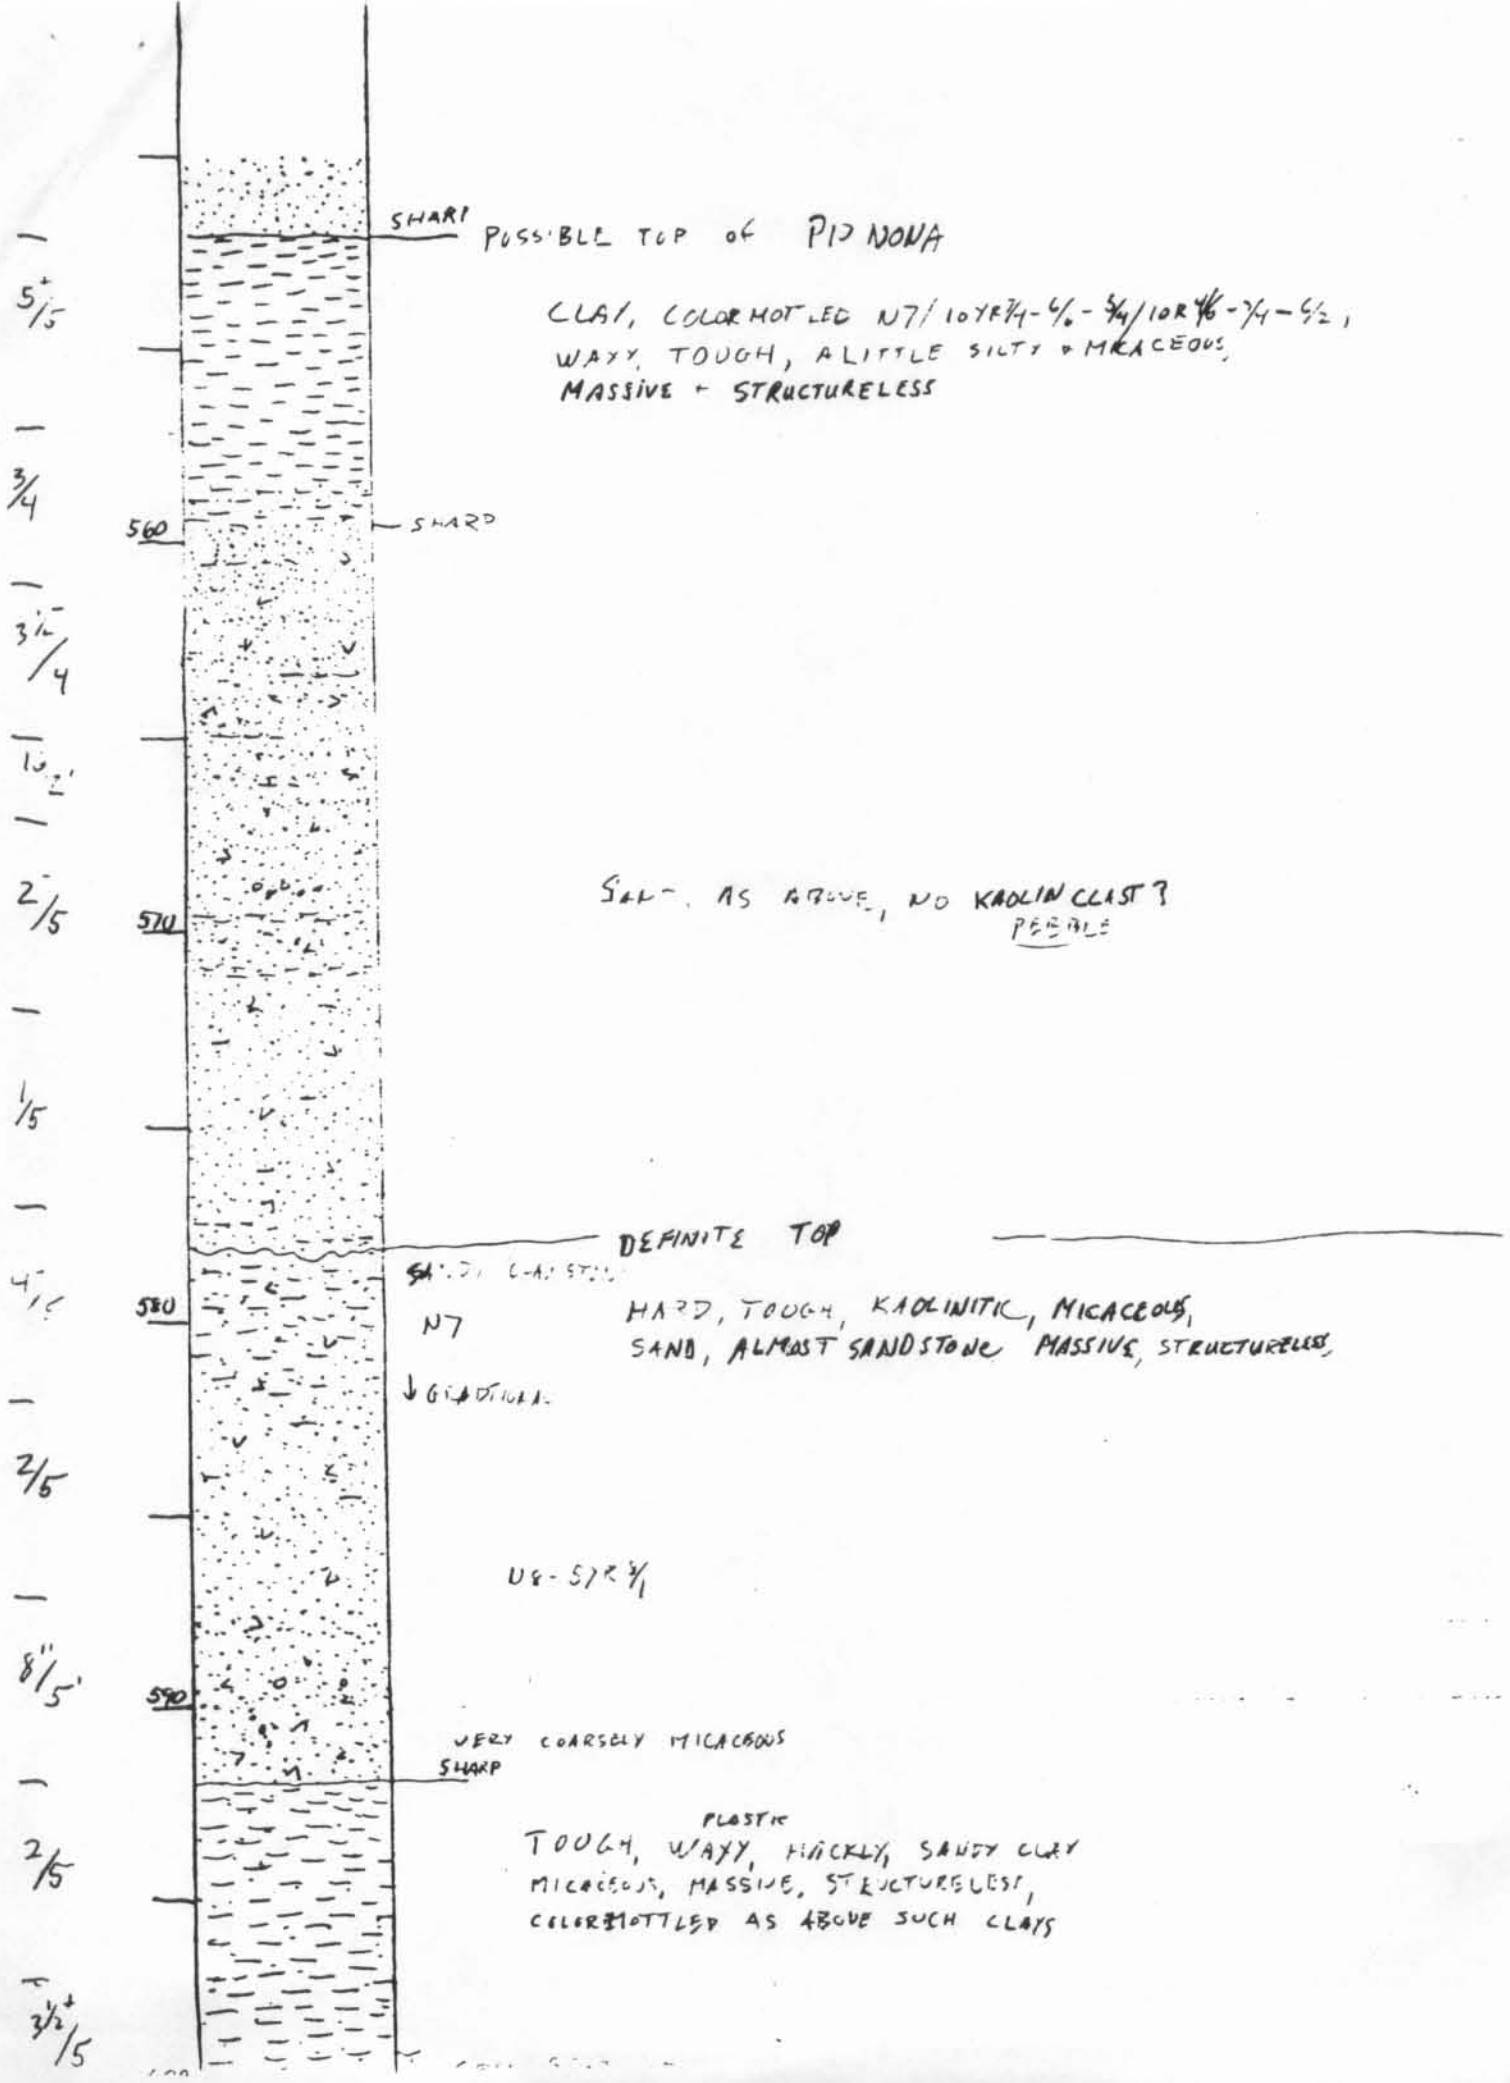 SHARP
POSSIBLE TOP of PIO NONA
5+/5
CLAY, COLOR MOTTLED N7/10YR 7/4-6/6-5/4/10R 4/6-7/4-6/2,
WAXY, TOUGH, A LITTLE SILTY + MICACEOUS,
MASSIVE + STRUCTURELESS
3/4
560
SHARP
3 1/2-/4
2-/5
SAND, AS ABOVE, NO KAOLIN CLAST?
PEBBLE
570
1/5
DEFINITE TOP
SANDY CLAYSTONE
580
N7
HARD, TOUGH, KAOLINITIC, MICACEOUS,
SAND, ALMOST SANDSTONE MASSIVE, STRUCTURELESS,
↓ GRADATIONAL
2/5
N8-5YR 8/1
8"/5'
590
VERY COARSELY MICACEOUS
SHARP
PLASTIC
2/5
TOUGH, WAXY, HACKLY, SANDY CLAY
MICACEOUS, MASSIVE, STRUCTURELESS,
COLOR MOTTLED AS ABOVE SUCH CLAYS
3 1/2+/5